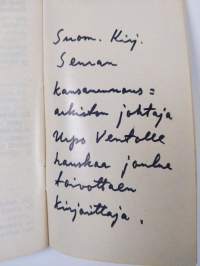 Suom. Kirj.
Seuran
kansanrunous=
arkiston johtaja
Urpo Ventolle
hauskaa joulua
toivottaen
kirjoittaja.